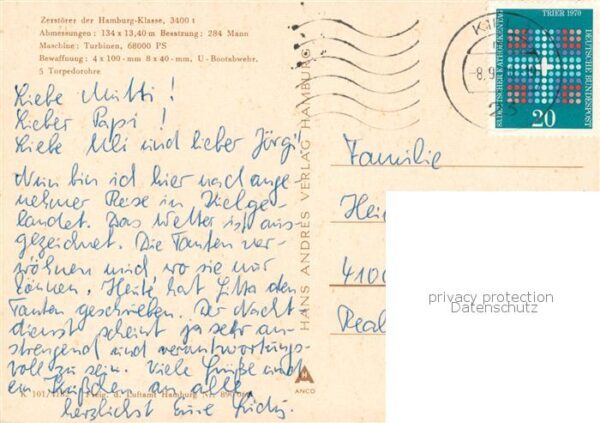 Zerstörer der Hamburg-Klasse, 3400 t
Abmessungen: 134 x 13,40 m Besatzung: 284 Mann
Maschine: Turbinen, 68000 PS
Bewaffnung: 4 x 100-mm 8 x 40-mm, U-Bootsabwehr,
5 Torpedorohre
Liebe Mutti!
Lieber Papi!
Liebe Uli und lieber Jörgi!
Nun bin ich hier nach ange-
nehmer Reise in Kiel ge-
landet. Das Wetter ist aus-
gezeichnet. Die Tanten ver-
wöhnen mich, wo sie nur
können. Heute hat Litta den
Tanten geschrieben. Der Nacht
dienst scheint ja sehr an-
strengend und verantwortungs-
voll zu sein. Viele Grüße und
ein Küßchen an alle,
herzlichst Eure
K 101/ Freig. d. Luftamt Hamburg Nr.
HANS ANDRES VERLAG HAMBURG
ANCO
KIEL
-8.9.
23
TRIER 1970
DEUTSCHE BUNDESPOST
83. DEUTSCHER KATHOLIKENTAG
20
Familie
Hei
4100
Real
privacy protection
Datenschutz